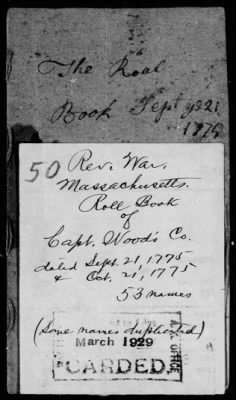 The Roal
Book Sept ye 21
1775
50
Rev. War.
Massachusetts.
Roll Book
of
Capt. Wood's Co.
dated Sept. 21, 1775
& Oct. 21, 1775
53 names
(Some names duplicated)
March 1929
CARDED.